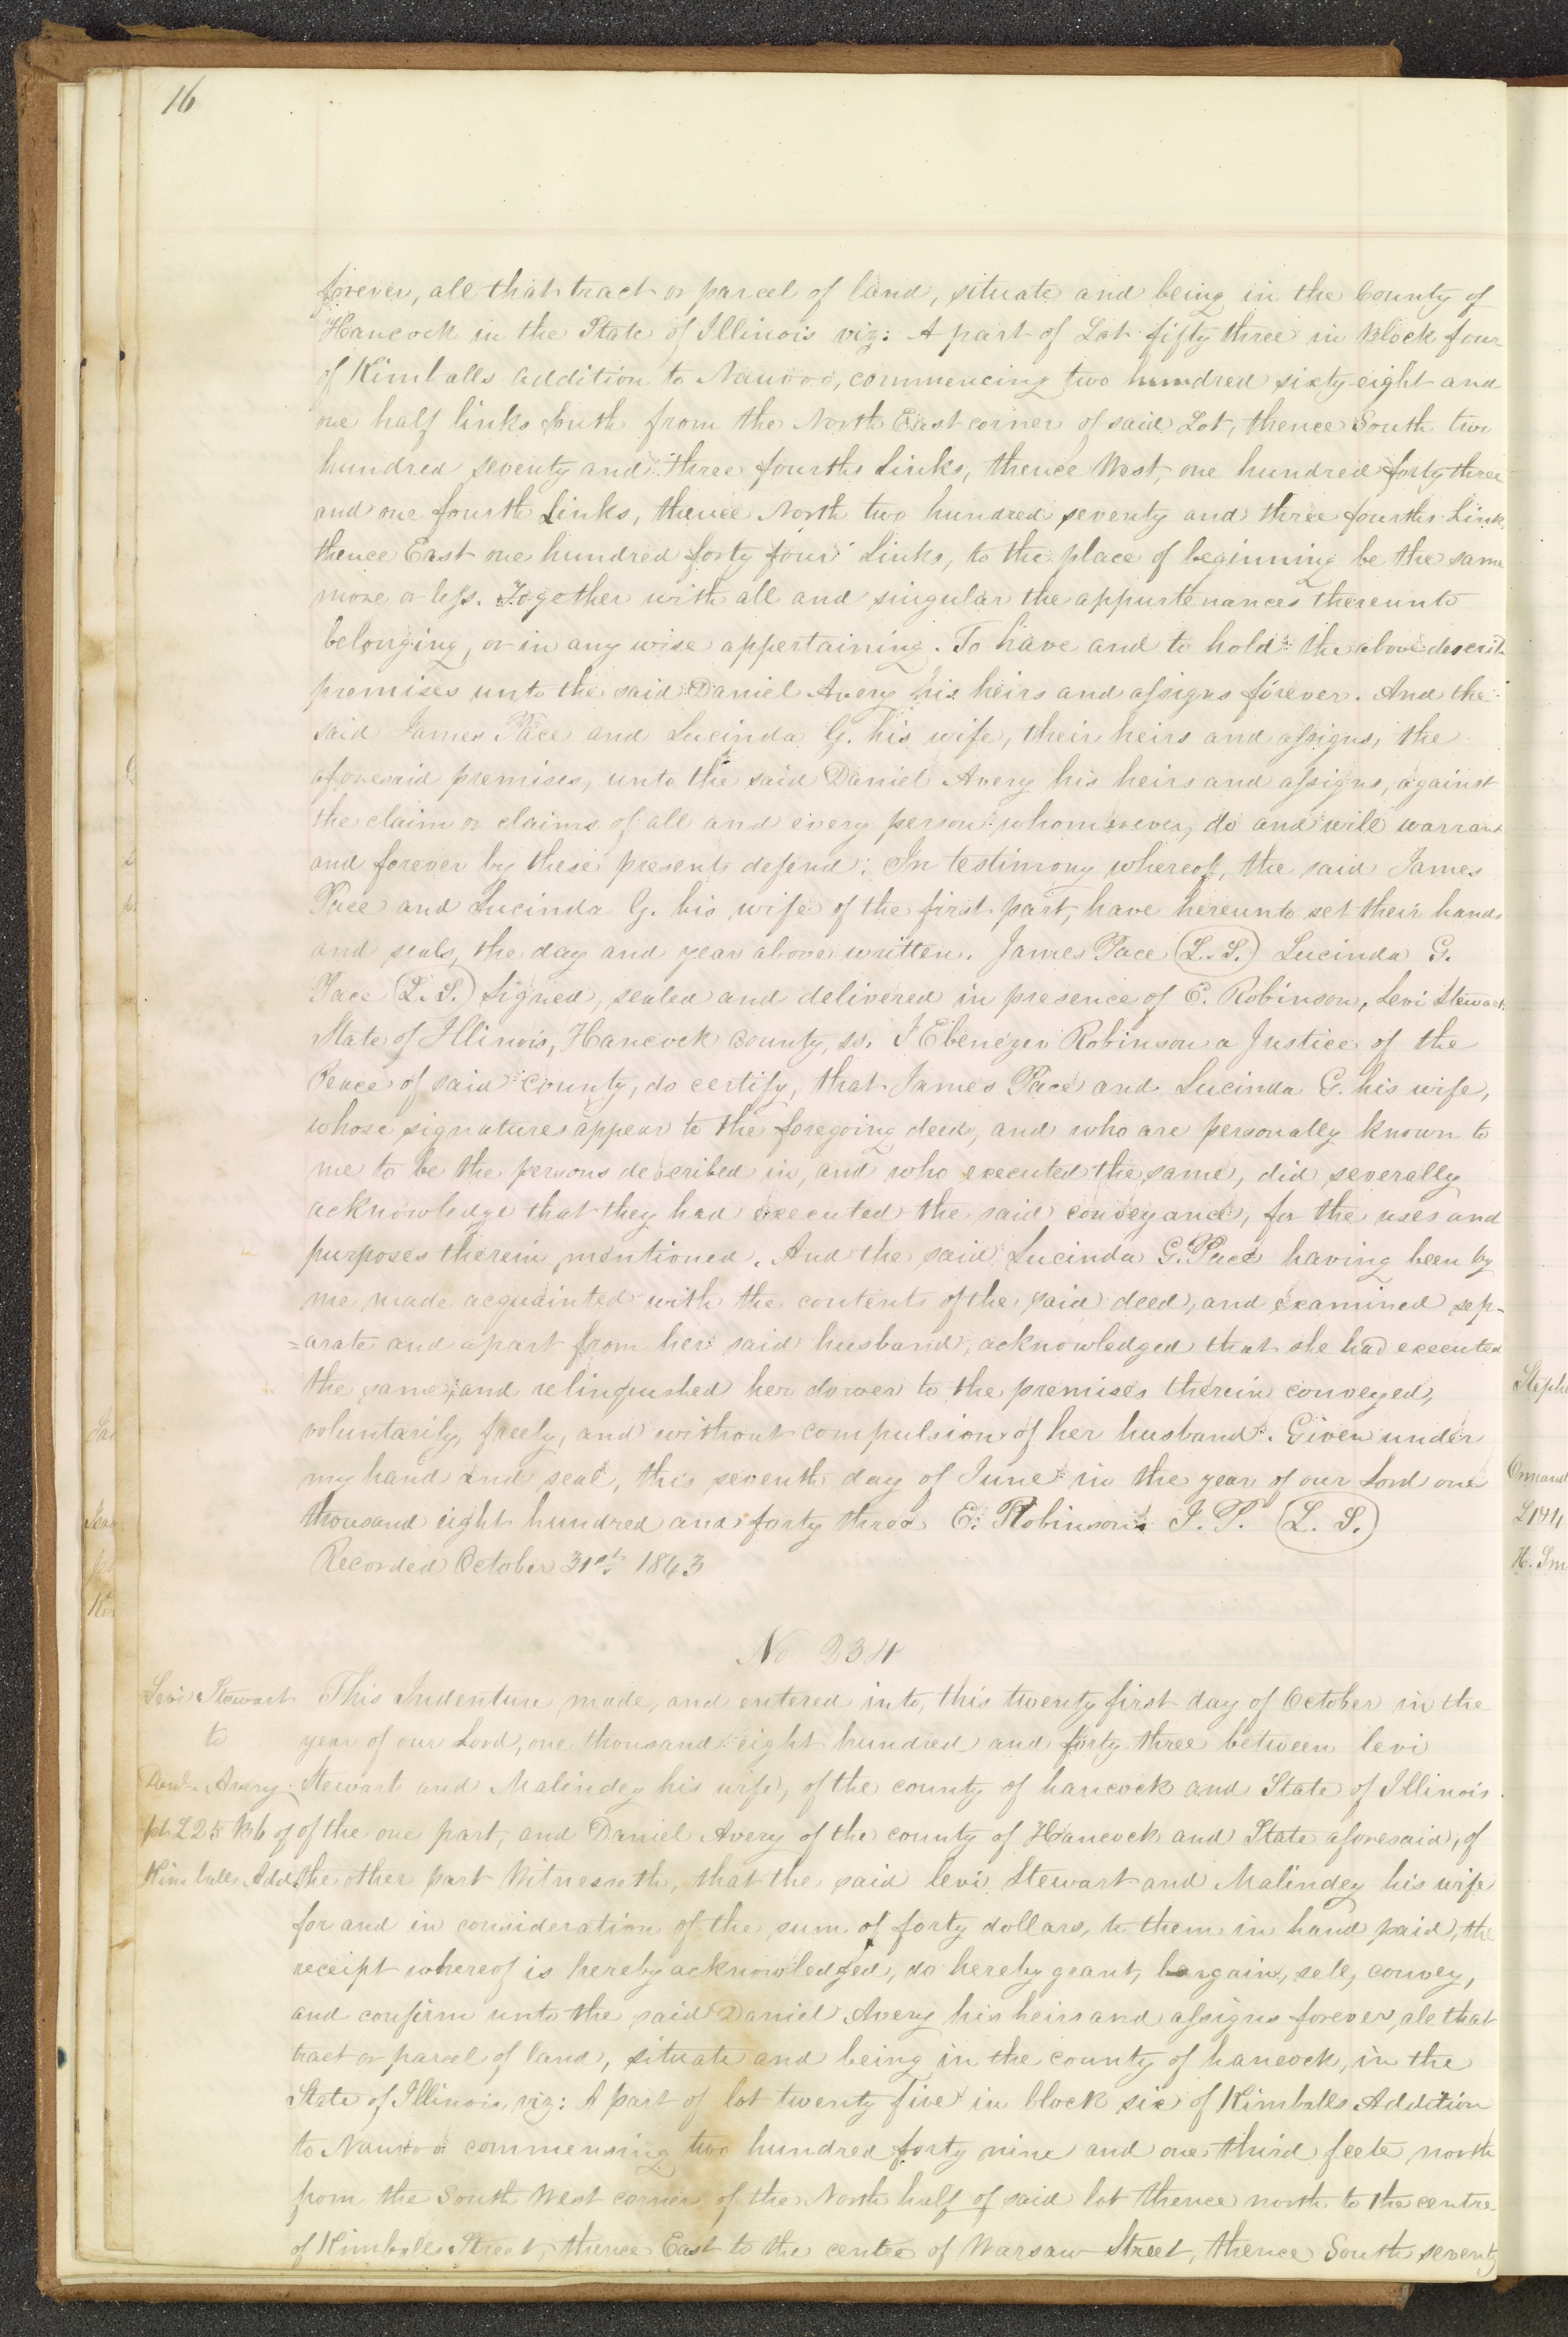 16
forever, all that tract or parcel of land, situate and being in the County of
Hancock in the State of Illinois viz: A part of Lot fifty three in Block four
of Kimballs addition to Nauvoo, commencing two hundred sixty-eight and
one half links South from the North East corner of said Lot, thence South two
hundred seventy and three fourths links, thence West, one hundred forty three
and one fourth Links, thence North two hundred seventy and three fourths Link
thence East one hundred forty four Links, to the place of beginning be the same
more or less. Together with all and singular the appurtenances thereunto
belonging, or in any wise appertaining. To have and to hold the above describ
premises unto the said Daniel Avery his heirs and assigns forever. And the
said James Pace and Lucinda G. his wife, their heirs and assigns, the
aforesaid premises, unto the said Daniel Avery his heirs and assigns, against
the claim or claims of all and every person whomsoever, do and will warrant
and forever by these presents defend: In testimony whereof, the said James
Pace and Lucinda G. his wife of the first part, have hereunto set their hands
and seals, the day and year above written. James Pace (L. S.) Lucinda G.
Pace (L. S.) Signed, sealed and delivered in presence of E. Robinson, Levi Stewart.
State of Illinois, Hancock County, ss. I Ebenezer Robinson a Justice of the
Peace of said County, do certify, that James Pace and Lucinda G. his wife,
whose signatures appear to the foregoing deed, and who are personally known to
me to be the persons described in, and who executed the same, did severally
acknowledge that they had executed the said conveyance, for the uses and
purposes therein mentioned. And the said Lucinda G. Pace having been by
me made acquainted with the contents of the said deed, and examined sep-
=arate and apart from her said husband, acknowledged that she had executed
the same, and relinquished her dower to the premises therein conveyed,
voluntarily, freely, and without compulsion of her husband. Given under
my hand and seal, this seventh day of June in the year of our Lord one
thousand eight hundred and forty three E. Robinson J. P. (L. S.)
Recorded October 31st 1843
No 234
Levi Stewart This Indenture made, and entered into, this twenty first day of October in the
to year of our Lord, one thousand eight hundred and forty three between levi
Danl. Avery. Stewart and Malindey his wife, of the county of hancock and State of Illinois
pt L 25 B 6 of of the one part, and Daniel Avery of the county of Hancock and State aforesaid, of
Kimballs Add. the other part Witnesseth, that the said levi Stewart and Malindey his wife
for and in consideration of the sum of forty dollars, to them in hand paid, the
receipt whereof is hereby acknowledged, do hereby grant, bargain, sell, convey,
and confirm unto the said Daniel Avery his heirs and assigns forever, all that
tract or parcel of land, situate and being in the county of hancock, in the
State of Illinois, viz: A part of lot twenty five in block six of Kimballs Addition
to Nauvoo commensing two hundred forty nine and one third feete north
from the South West corner of the North half of said lot thence north to the centre
of Kimballs Street, thence East to the centre of Warsaw Street, thence South seventy
Steph
H. Sm